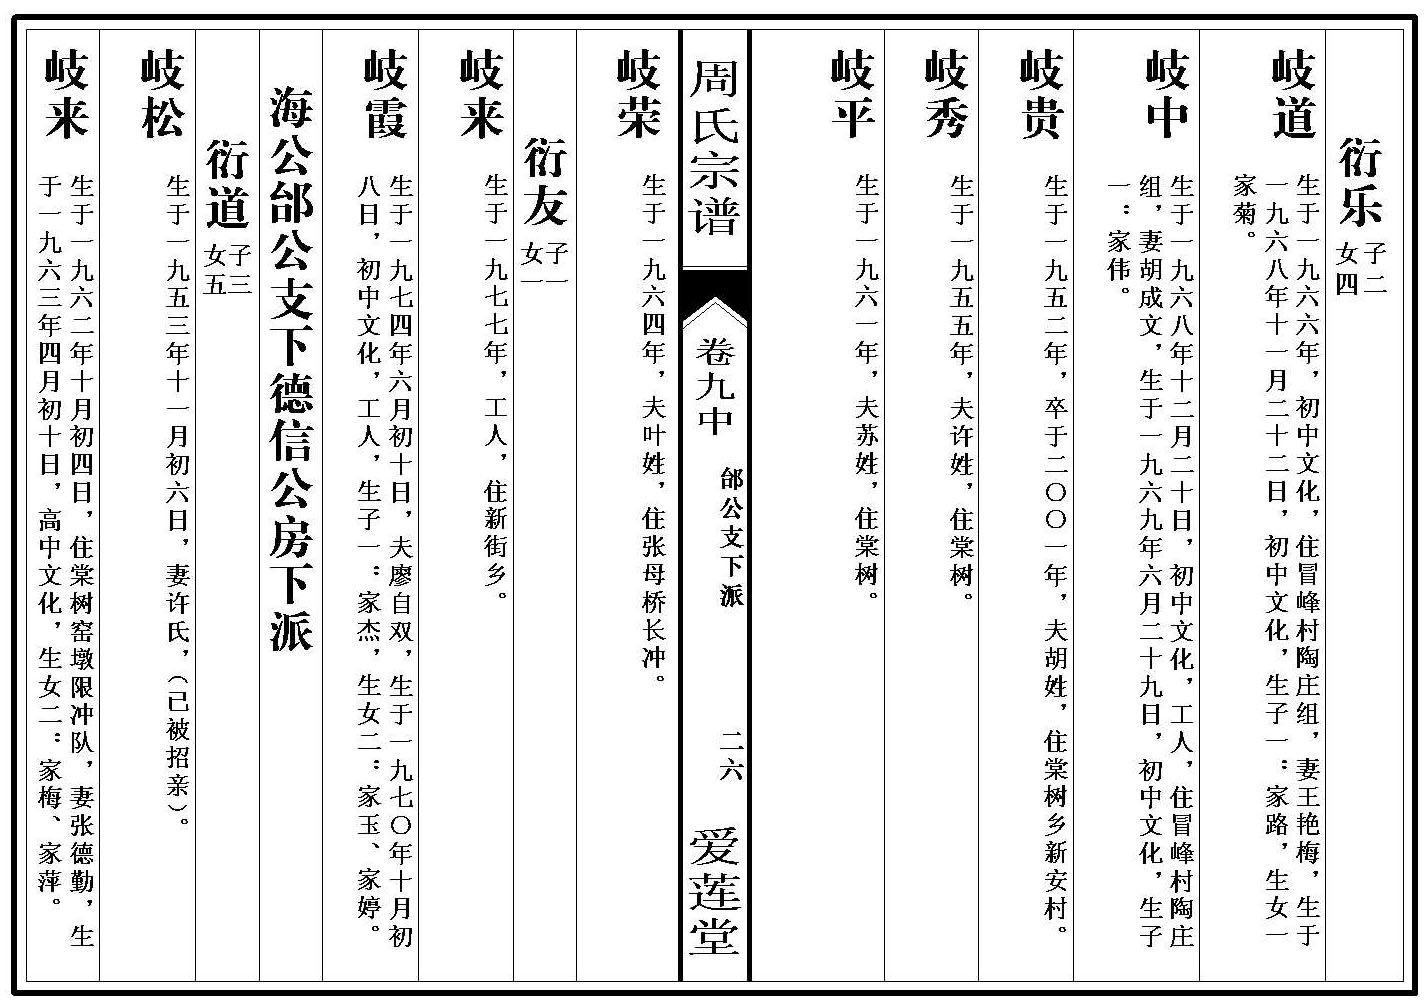 衍乐 子二 女四
岐道 生于一九六六年，初中文化，住冒峰村陶庄组，妻王艳梅，生于
一九六八年十一月二十二日，初中文化，生子一：家路，生女一
家菊。
岐中 生于一九六八年十二月二十日，初中文化，工人，住冒峰村陶庄
组，妻胡成文，生于一九六九年六月二十九日，初中文化，生子
一：家伟。
岐贵 生于一九五二年，卒于二〇〇一年，夫胡姓，住棠树乡新安村。
岐秀 生于一九五五年，夫许姓，住棠树。
岐平 生于一九六一年，夫苏姓，住棠树。
周氏宗谱 卷九中 邰公支下派 二六 爱莲堂
岐荣 生于一九六四年，夫叶姓，住张母桥长冲。
衍友 子一 女一
岐来 生于一九七七年，工人，住新街乡。
岐霞 生于一九七四年六月初十日，夫廖自双，生于一九七〇年十月初
八日，初中文化，工人，生子一：家杰，生女二：家玉、家婷。
海公邰公支下德信公房下派
衍道 子三 女五
岐松 生于一九五三年十一月初六日，妻许氏，（已被招亲）。
岐来 生于一九六二年十月初四日，住棠树窑墩限冲队，妻张德勤，生
于一九六三年四月初十日，高中文化，生女二：家梅、家萍。